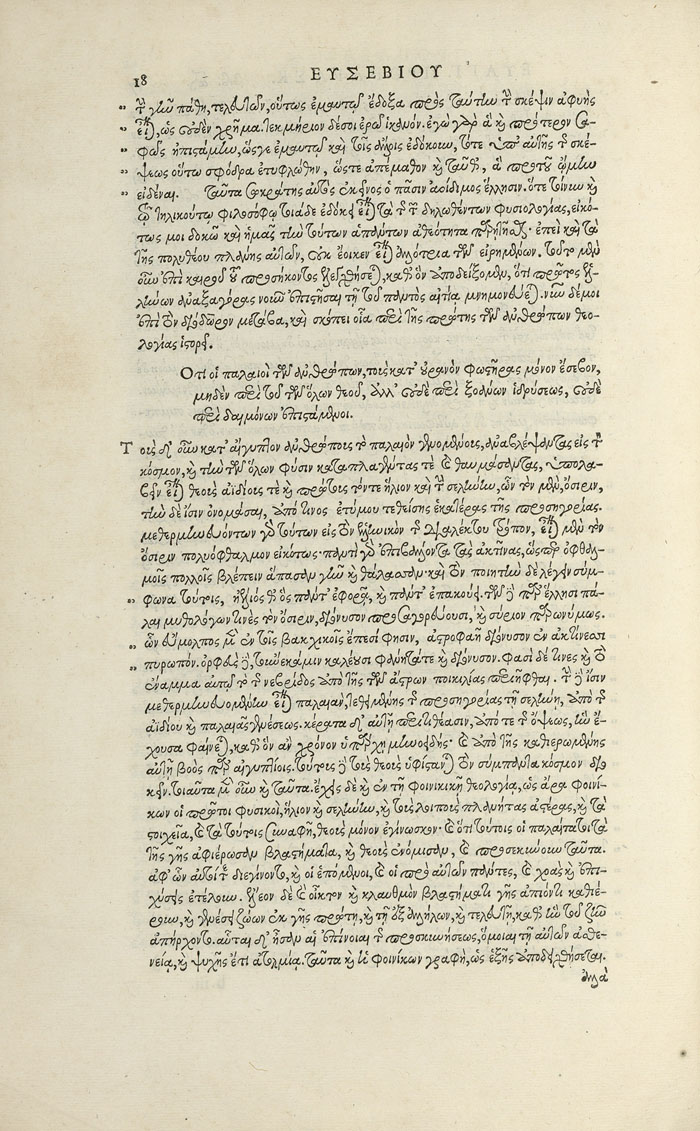 18 ΕΥΣΕΒΙΟΥ
τὴν γῆν πάθη, τελευτῶν, οὕτως ἐμαυτῷ ἔδοξα πρὸς ταύτην τὴν σκέψιν ἀφυὴς
εἶναι, ὡς οὐδὲν χρῆμα. τεκμήριον δέ σοι ἐρῶ ἱκανόν. ἐγὼ γὰρ ἃ καὶ πρότερον σα-
φῶς ἠπιστάμην, ὥς γε ἐμαυτῷ καὶ τοῖς ἄλλοις ἐδόκουν, τότε ὑπὸ αὐτῆς τῆς σκέ-
ψεως οὕτω σφόδρα ἐτυφλώθην, ὥστε ἀπέμαθον καὶ ταῦθ', ἃ προτοῦ ᾤμην
εἰδέναι. Ταῦτα σωκράτης αὐτὸς ἐκεῖνος ὁ πᾶσιν ἀοίδιμος ἕλλησιν. ὅτε τοίνυν καὶ
τῷ τηλικούτῳ φιλοσόφῳ τοιάδε ἐδόκει εἶναι τὰ τῆς τῶν δηλωθέντων φυσιολογίας, εἰκό-
τως μοι δοκῶ καὶ ἡμᾶς τὴν τούτων ἁπάντων ἀθεότητα παρῃτῆσθαι. ἐπεὶ καὶ τὰ
τῆς πολυθέου πλάνης αὐτῶν, οὐκ ἔοικεν εἶναι ἀλλότρια τῶν εἰρημένων. τοῦτο μὲν
οὖν ἐπὶ καιροῦ τοῦ προσήκοντος ἐξελεγχθήσεται, καθ' ὃν ἀποδείξομεν, ὅτι πρῶτος ἑλ-
λήνων ἀναξαγόρας νοῦν ἐπιστῆσαι τῇ τοῦ παντὸς αἰτίᾳ μνημονεύεται. νῦν δέ μοι
ἐπὶ τὸν διόδωρον μετάβα, καὶ σκόπει οἷα περὶ τῆς πρώτης τῶν ἀνθρώπων θεο-
λογίας ἱστορεῖ.
Ὅτι οἱ παλαιοὶ τῶν ἀνθρώπων, τοὺς κατ' οὐρανὸν φωστῆρας μόνον ἔσεβον,
μηδὲν περὶ τοῦ τῶν ὅλων θεοῦ, ἀλλ' οὐδὲ περὶ ξοάνων ἱδρύσεως, οὐδὲ
περὶ δαιμόνων ἐπιστάμενοι.
Τοὺς δ' οὖν κατ' αἴγυπτον ἀνθρώπους τὸ παλαιὸν γενομένους, ἀναβλέψαντας εἰς τὸν
κόσμον, καὶ τὴν τῶν ὅλων φύσιν καταπλαγέντας τὲ καὶ θαυμάσαντας, ὑπολα-
βεῖν εἶναι θεοὺς ἀϊδίους τὲ καὶ πρώτους τόν τε ἥλιον καὶ τὴν σελήνην, ὧν τὸν μὲν, ὄσιριν,
τὴν δὲ ἶσιν ὀνομάσαι, ἀπό τινος ἐτύμου τεθείσης ἑκατέρας τῆς προσηγορίας.
μεθερμηνευόντων γὰρ τούτων εἰς τὸν ἑλληνικὸν τῆς διαλέκτου τρόπον, εἶναι μὲν τὸν
ὄσιριν πολυόφθαλμον εἰκότως· πάντῃ γὰρ ἐπιβάλλοντα τὰς ἀκτῖνας, ὥσπερ ὀφθαλ-
μοῖς πολλοῖς βλέπειν ἅπασαν γῆν καὶ θάλασσαν· καὶ τὸν ποιητὴν δὲ λέγειν σύμ-
φωνα τούτοις, ἠέλιός θ' ὃς πάντ' ἐφορᾷ, καὶ πάντ' ἐπακούει. τῶν δὲ παρ' ἕλλησι πα-
λαι μυθολόγων τινὲς τὸν ὄσιριν, διόνυσον προσαγορεύουσι, καὶ σύριον παρωνύμως.
ὧν εὔμολπος μὲν ἐν τοῖς βακχικοῖς ἔπεσί φησιν, ἀστροφαῆ διόνυσον ἐν ἀκτίνεσσι
πυρωπόν. ὀρφεὺς δὲ, τοὔνεκά μιν καλέουσι φάνητά τε καὶ διόνυσον. φασὶ δέ τινες καὶ τὸ
ἔναμμα αὐτῷ τὸ τῆς νεβρίδος ἀπὸ τῆς τῶν ἄστρων ποικιλίας περιῆφθαι. τὴν δὲ ἶσιν
μεθερμηνευομένην εἶναι παλαιάν, τεθειμένης τῆς προσηγορίας τῇ σελήνῃ, ἀπὸ τῆς
ἀϊδίου καὶ παλαιᾶς γενέσεως. κέρατα δ' αὐτῇ περιτιθέασιν, ἀπό τε τῆς ὄψεως, ἣν ἔ-
χουσα φαίνεται, καθ' ὃν ἂν χρόνον ὑπάρχῃ μηνοειδής· καὶ ἀπὸ τῆς καθιερωμένης
αὐτῇ βοὸς παρ' αἰγυπτίοις. τούτους δὲ τοὺς θεοὺς ὑφίστανται τὸν σύμπαντα κόσμον διοι-
κεῖν. τοιαῦτα μὲν οὖν καὶ ταῦτα. ἔχεις δὲ καὶ ἐν τῇ φοινικικῇ θεολογίᾳ, ὡς ἄρα φοινί-
κων οἱ πρῶτοι φυσικοὶ, ἥλιον καὶ σελήνην, καὶ τοὺς λοιποὺς πλανήτας ἀστέρας, καὶ τὰ
στοιχεῖα, καὶ τὰ τούτοις συναφῆ, θεοὺς μόνον ἐγίνωσκον· καὶ ὅτι τούτοις οἱ παλαίτατοι τὰ
τῆς γῆς ἀφιέρωσαν βλαστήματα, καὶ θεοὺς ἐνόμισαν, καὶ προσεκύνουν ταῦτα.
ἀφ' ὧν αὐτοί τε διεγίνοντο, καὶ οἱ ἑπόμενοι, καὶ οἱ πρὸ αὐτῶν πάντες, καὶ χοὰς καὶ ἐπι-
χύσεις ἐτέλουν. ἔλεον δὲ καὶ οἶκτον καὶ κλαυθμὸν βλαστήματι γῆς ἀπιόντι καθιέ-
ρουν, καὶ γενέσει ζῴων ἐκ γῆς πρώτῃ, καὶ τῇ ἐξ ἀλλήλων, καὶ τελευτῇ, καθ' ἣν τοῦ ζῆν
ἀπήρχοντο. αὗται δ' ἦσαν αἱ ἐπίνοιαι τῆς προσκυνήσεως, ὅμοιαι τῇ αὐτῶν ἀσθε-
νείᾳ, καὶ ψυχῆς ἔτι ἀτολμίᾳ. ταῦτα καὶ ἡ φοινίκων γραφὴ, ὡς ἑξῆς ἀποδειχθήσεται.
ἀλλὰ